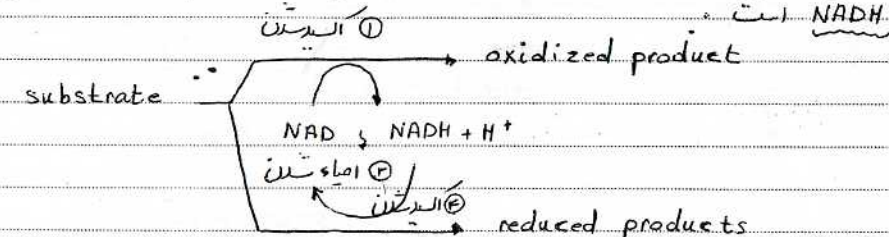 NADH است .
① اکسید شدن
oxidized product
substrate
NAD و NADH + H⁺
② احیاء شدن
④ اکسید شدن
reduced products